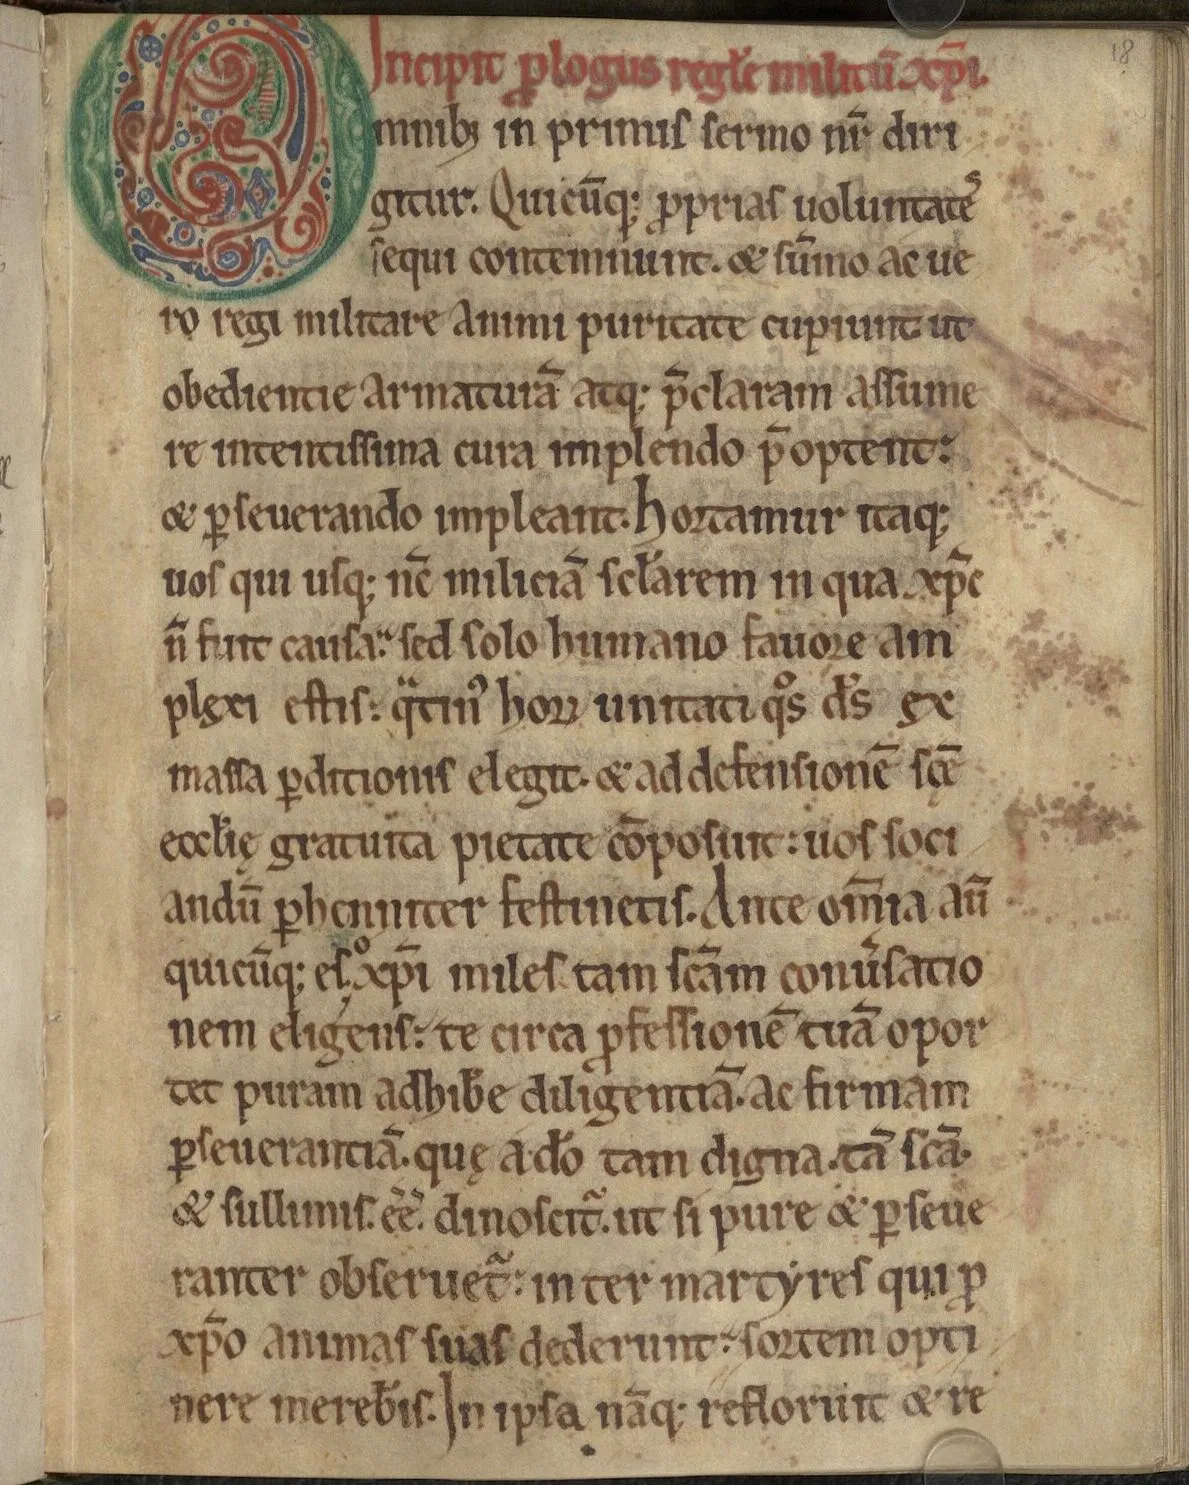 18
Incipit p̱logus regłe militū xp̄i.
Omnibꝫ in primis sermo nr̄ diri
gitur. Quicūq; ꝓprias uoluntatēˢ
sequi contemnunt. & sūmo ac ue
ro regi militare animi puritate cupiunt ut
obedientie armaturā atq; p̄claram assume
re intentissima cura implendo p̄optent:
& ꝑseuerando impleant. hortamur itaq;
uos qui usq; nc̄ miliciā secl̄arem in qua xp̄c
n̄ fuit causa: sed solo humano fauore am
plexi estis: qͣtinꝰ hoꝝ unitati qͦs d̄s ex
massa ꝑditionis elegit. & ad defensionē sc̄ę
eccl̄ię gratuita pietate cōposuit: uos soci
andū ꝑhenniter festinetis. Ante om̄ia aū
quicūq; es ͦ xp̄i miles tam sc̄am conūsatio
nem eligens: te circa ꝓfessionē tuā opor
tet puram adhib̄e diligentiā. ac firmam
ꝑseuerantiā. quę a dō tam digna. tā sc̄a.
& sullimis. ēē. dinoscit̄. ut si pure & ꝑseue
ranter obseruet̄: inter martyres qui ꝓ
xp̄o animas suas dederunt: sortem opti
nere mereb̄is. In ipsa nāq; refloruit & re